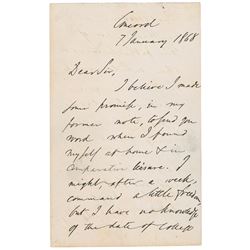 Concord
7 January 1868
Dear Sir,
I believe I made
some promise, in my
former note, to send you
word when I found
myself at home & in
comparative leisure. I
might, after a week,
command a little freedom,
but I have no knowledge
of the date of